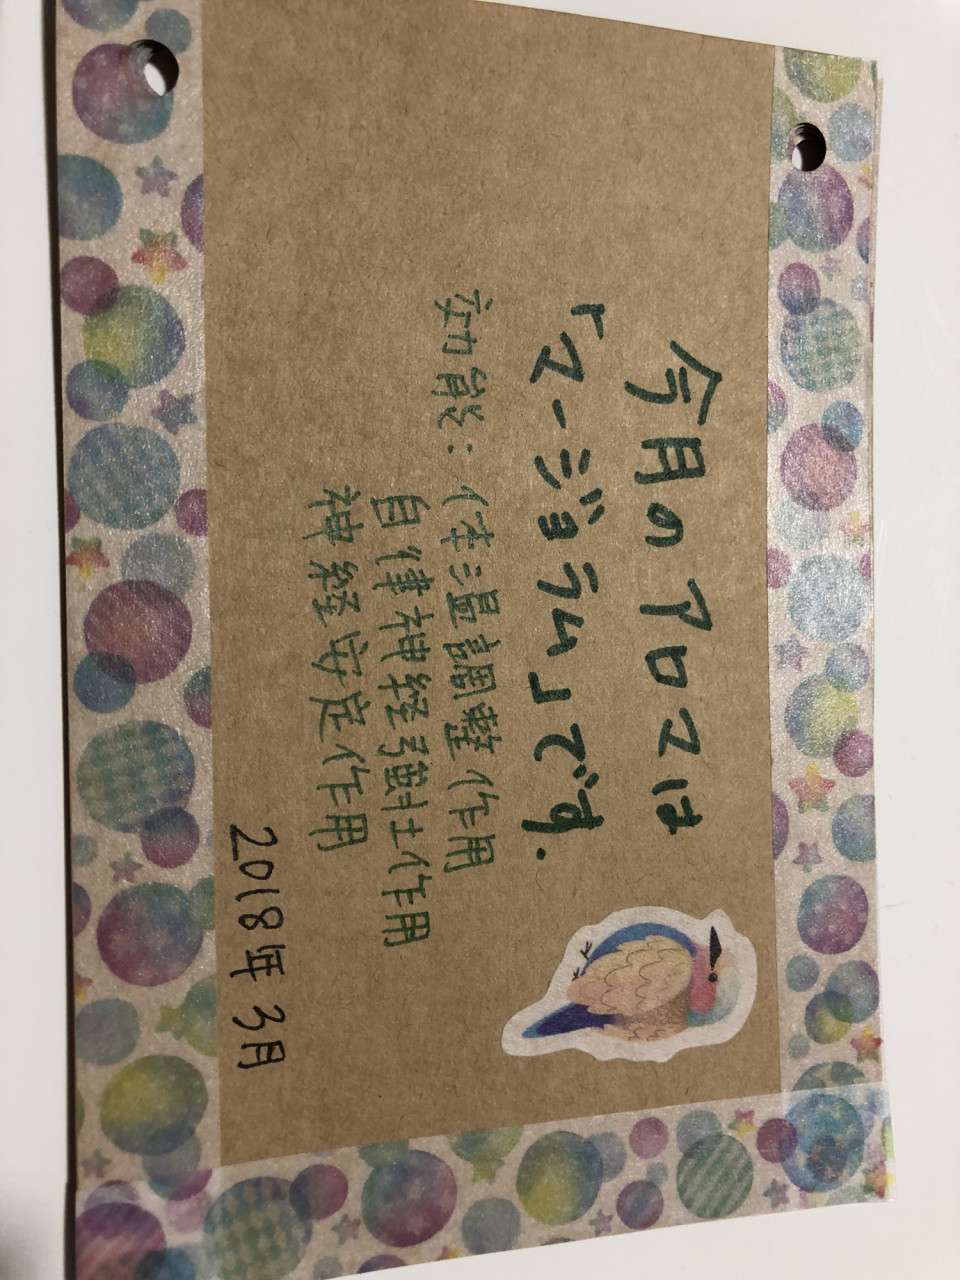 今月のアロマは
「マージョラム」です.
効能：体温調整作用
自律神経強壮作用
神経安定作用
2018年3月